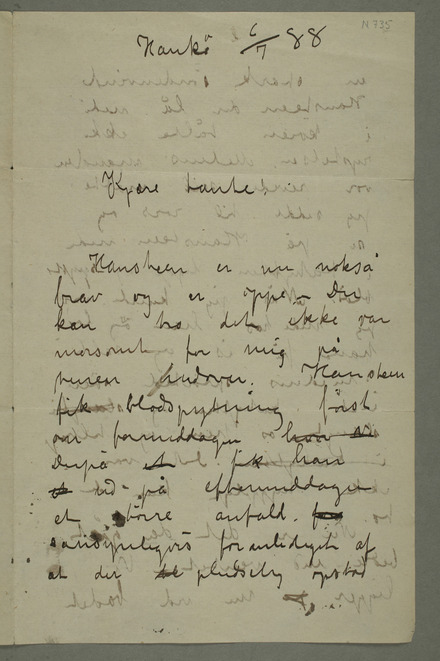 N 735
Hankø 6/7 88
Kjære tante!
Hansteen er nu nokså
brav og er oppe – Du
kan tro det ikke var
morsomt for mig på
veien indover. Hansteen
fik blodspytning først
om formiddagen
Derpå fik han
ud på eftermiddagen
et større anfald.
sandsynligvis foranlediget af
at der pludselig opstod